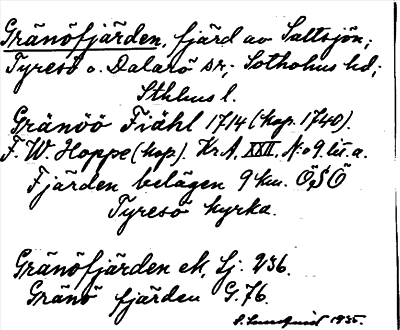 Gränöfjärden, fjärd av Saltsjön;
Tyresö o. Dalarö sr; Sotholms hd;
Sthlms l.
Gränöö Fiähl 1714 (kop. 1740).
F. W. Hoppe (kop). Kr.A. XXII. N:o 9 lit. a.
Fjärden belägen 9 km. ÖSÖ
Tyresö kyrka.
Gränöfjärden ek, Sj. 236.
Gränö fjärden G. 76.
S. Lundquist 1935.